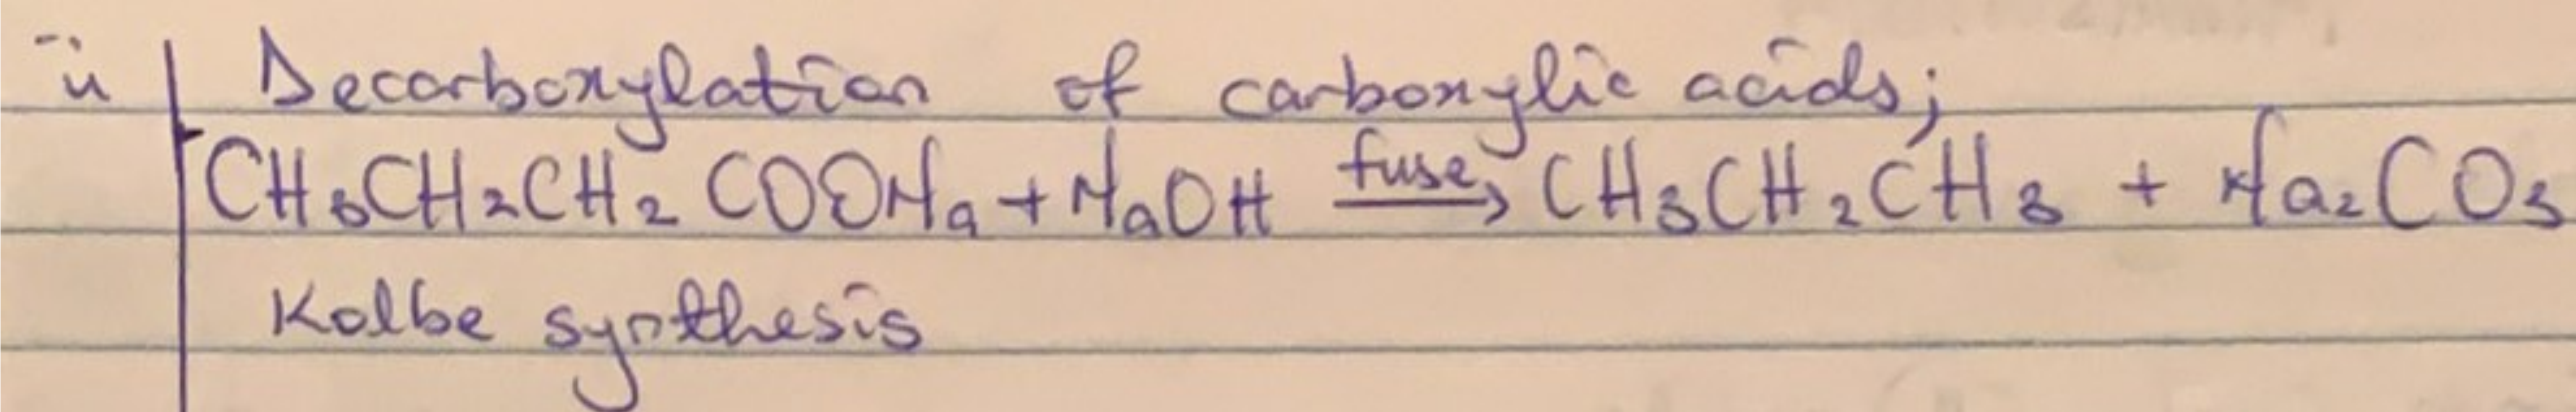 ii Decarboxylation of carboxylic acids;
CH₃CH₂CH₂COONa + NaOH fuse→ CH₃CH₂CH₃ + Na₂CO₃
Kolbe synthesis